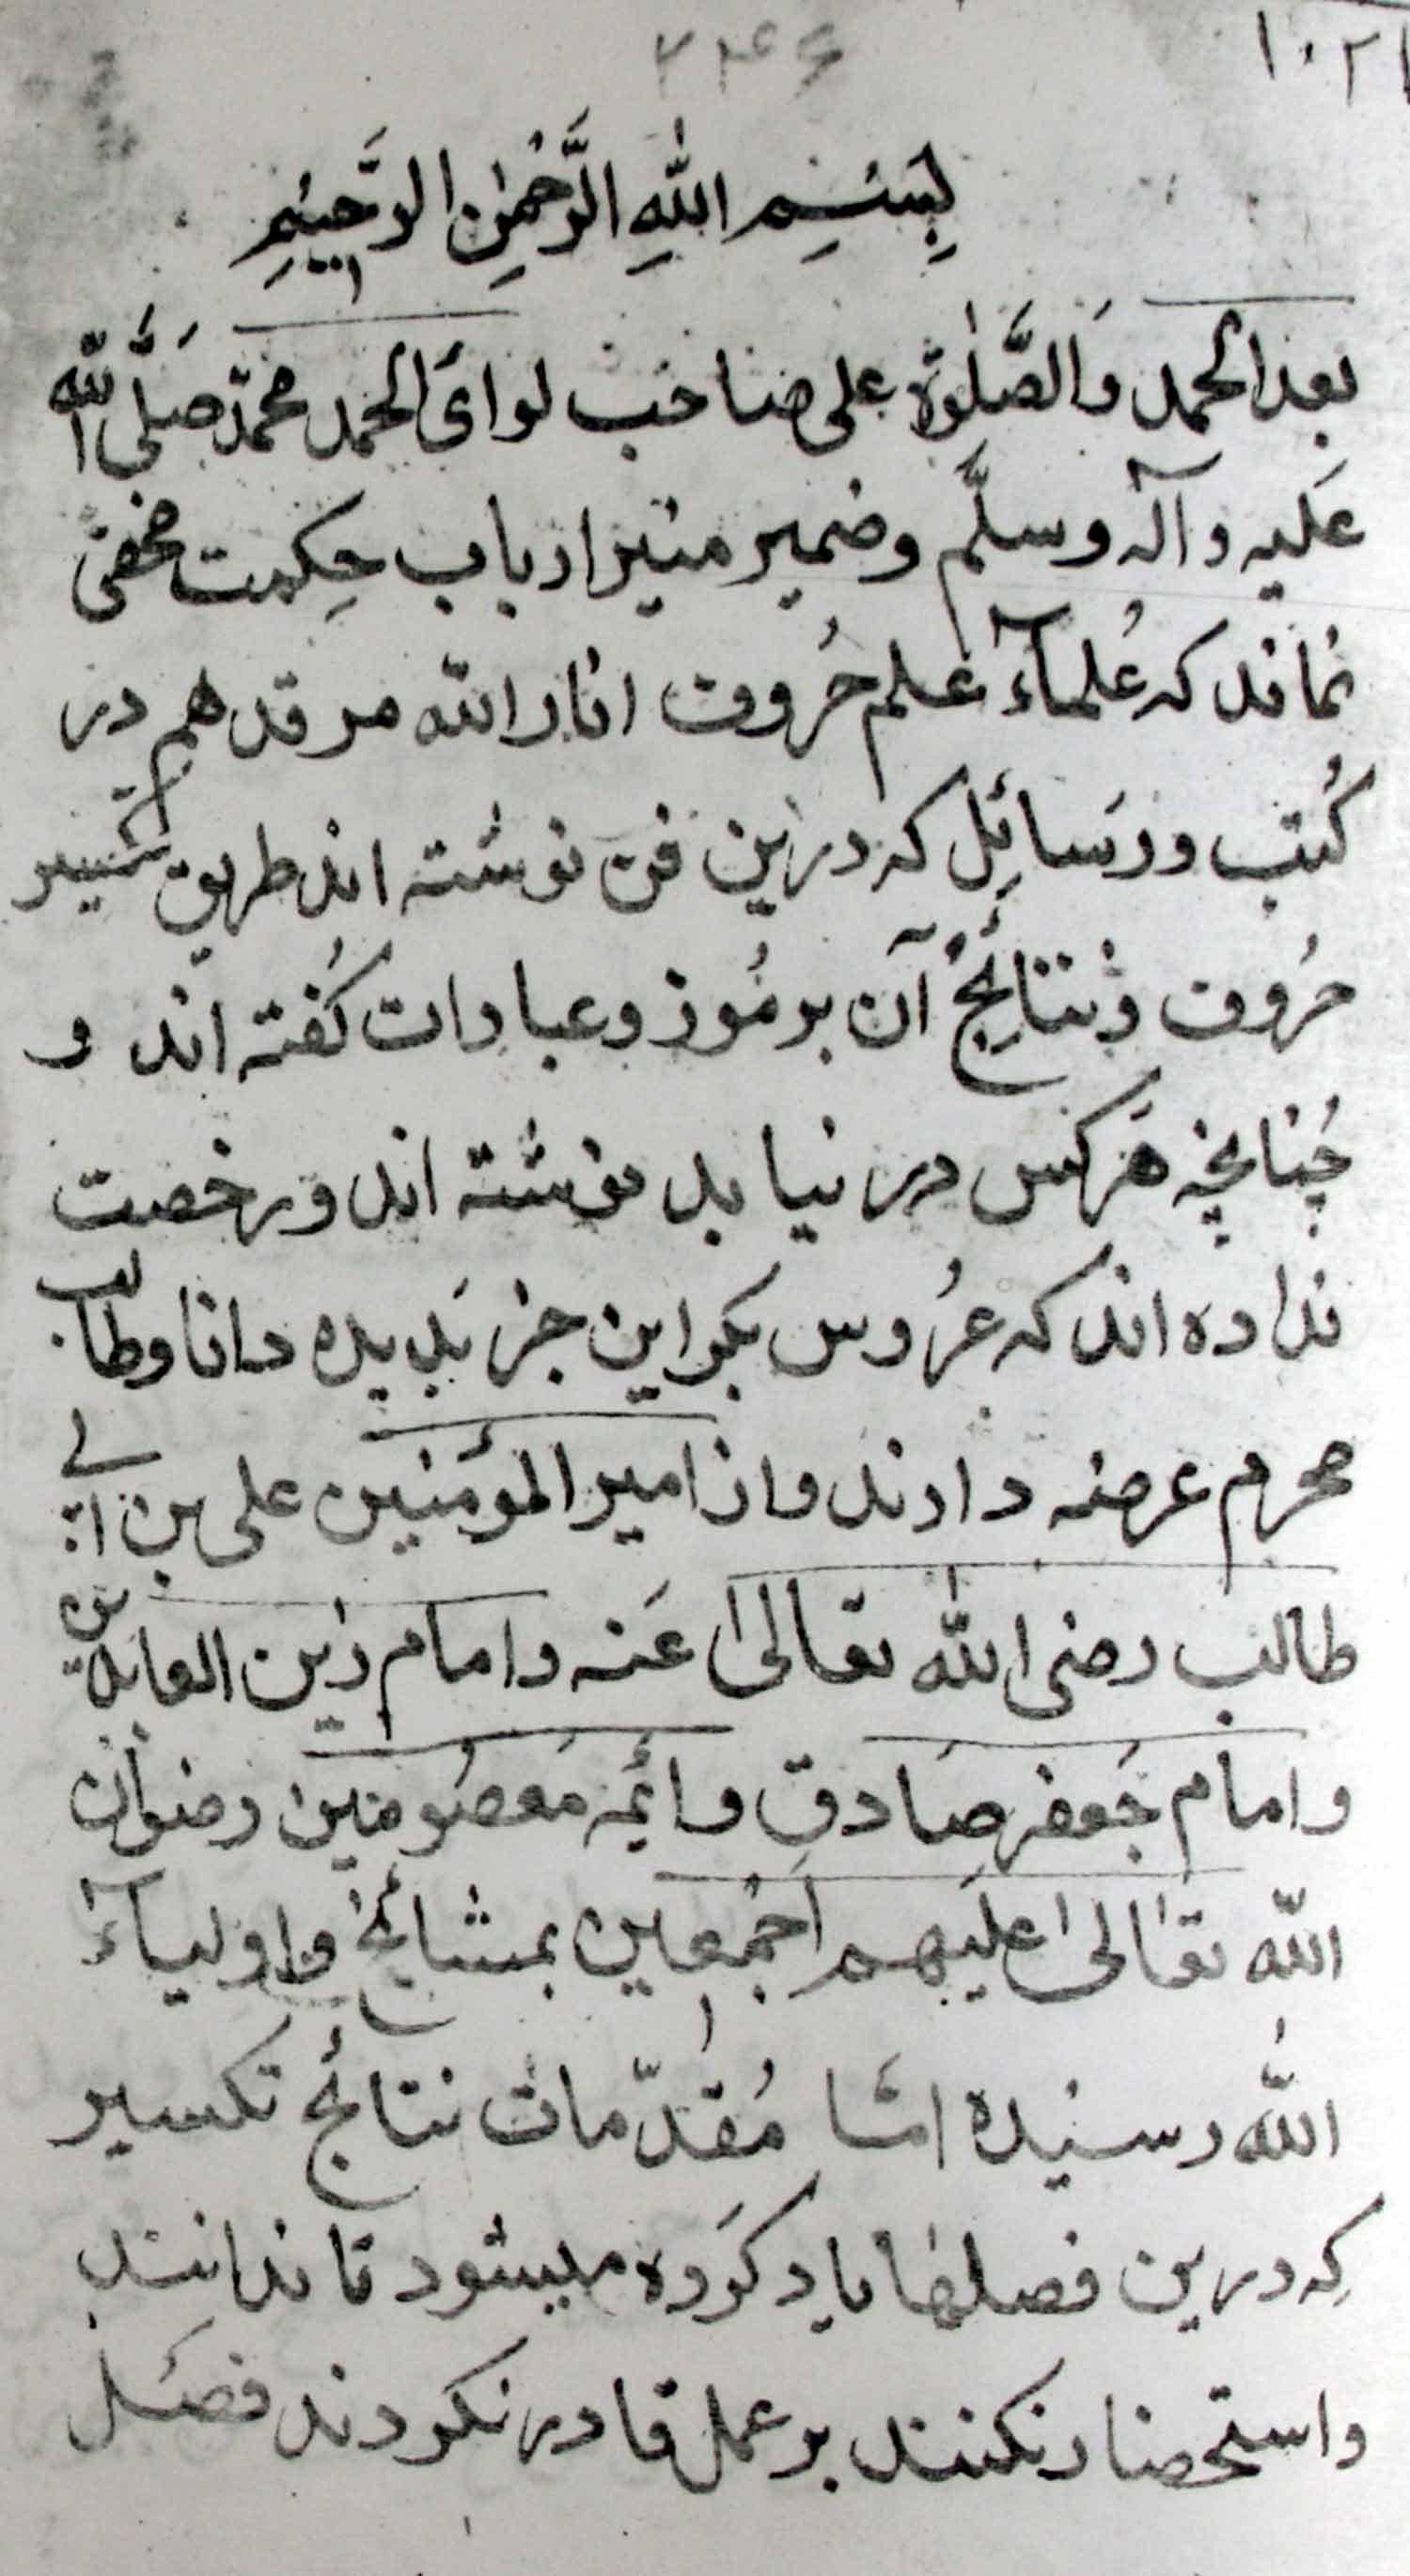 ۱۰۲۱
۲۴۶
بِسْمِ اللّٰهِ الرَّحْمٰنِ الرَّحِيْمِ
بعد الحمد وَالصَّلوٰة على صاحب لواىَ الحمد محمّد صَلَّى اللّٰه
عَليه وآله وسلَّم وضمير منير ارباب حِكمت مخفى
نماند كه عُلمآء علم حُروف انار اللّٰه مرقدهم در
كُتب ورَسائِل كه درين فن نوشته اند طريق تكسير
حُروف ونتائِج آن برمُوز وعبارات گفته اند و
چُنانچه هَركس در نيابد نوشته اند و رخصت
نداده اند كه عرُوس بكر اين جز بَديده دانا وطالب
محرم عرضه دارند واز امير المؤمنين على بن ابى
طالب رضى اللّٰه تعالىٰ عَنه وامام زين العابدين
وامام جَعفر صَادق وائمه مَعصُومين رضوان
اللّٰه تعالىٰ عليهم اَجْمعين بمشائخ واوليآء
اللّٰه رسيده امّا مُقدّمات نتائج تكسير
كِه درين فصلها ياد كرَده ميشود تا ندانند
واستحضار نكنند بر عمل قادر نكردند فصل